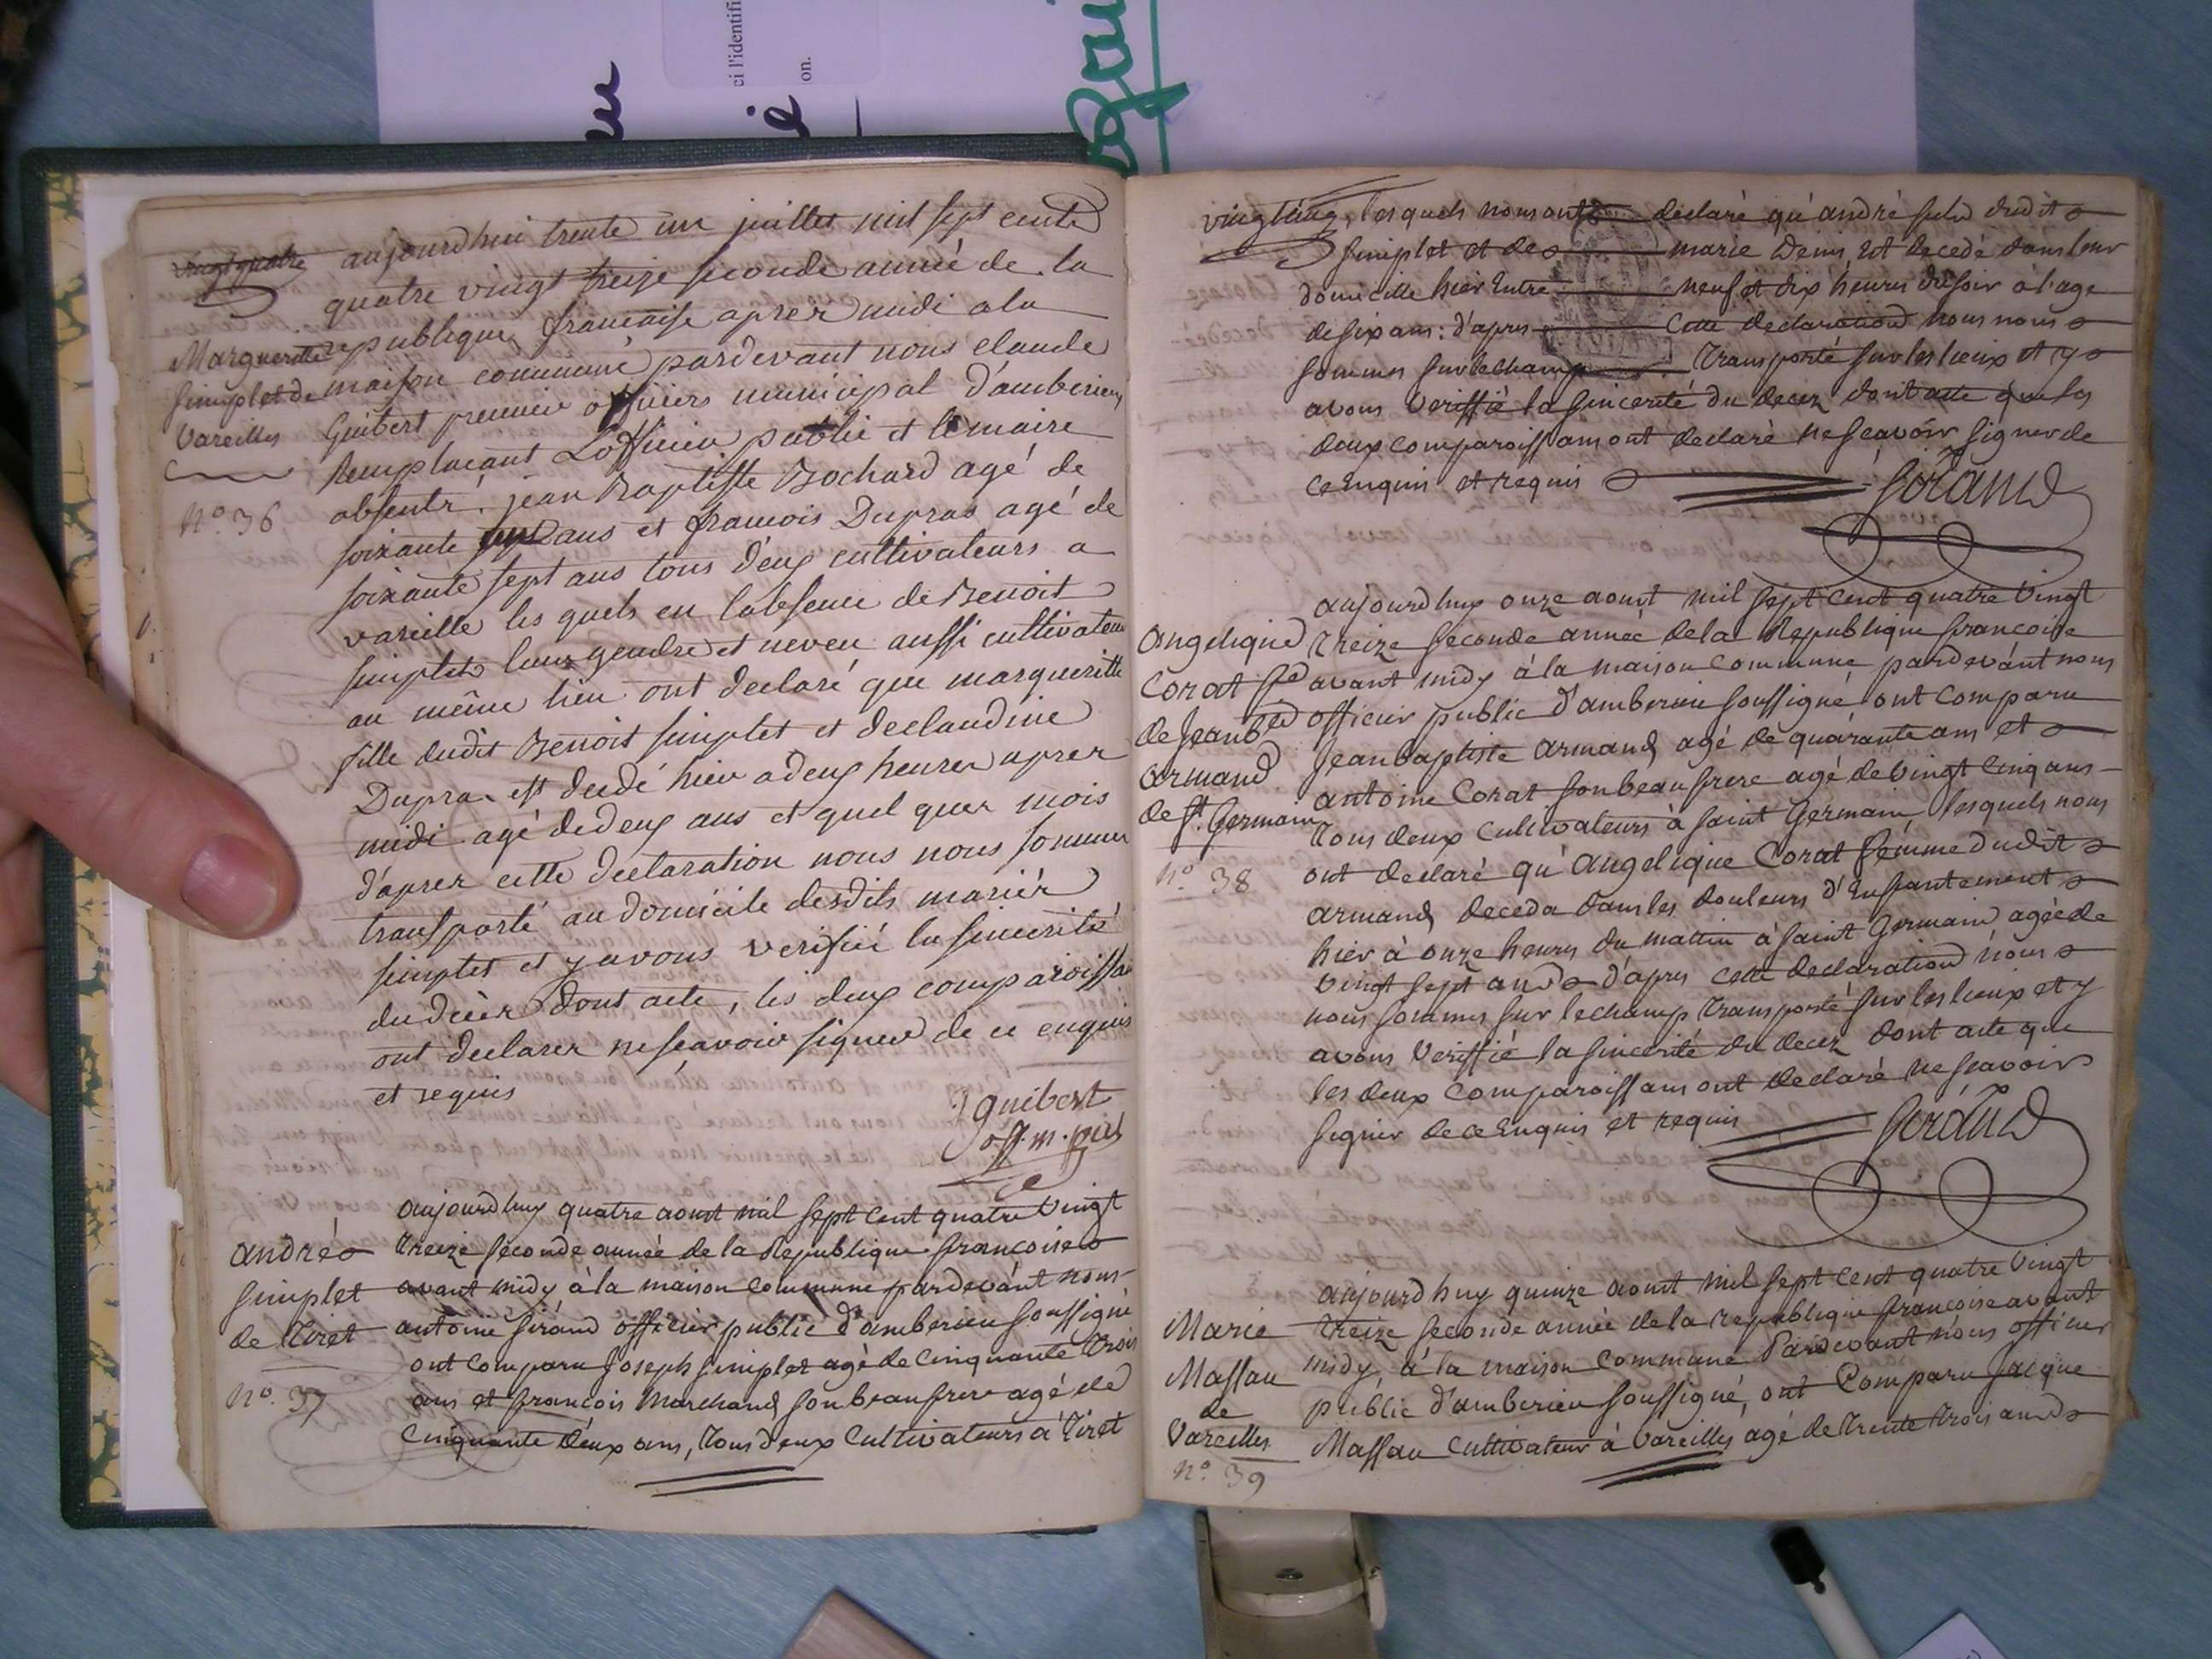 ci l'identifi
on.
vingt quatre
aujourdhui trente un juillet mil sept cents
quatre vingt treize seconde année de la
republique francaise aprer midi a la
maison commune pardevant nous claude
Guibert premier officiers municipal d'amberieux
Remplacant Lofficier public et le maire
absents. jean Baptiste Bochard agé de
soixante ans et francois Dupras agé de
soixante sept ans tous deux cultivateurs a
vareille les quels en labsence de Benoit
simplet leur gendre et neveu aussi cultivateur
au même lieu ont declaré que margueritte
fille dudit Benoit simplet et declaudine
Dupra est decedé hier a deux heures aprer
midi agé dedeux ans et quel quer mois
d'aprer cette declaration nous nous sommes
transporté au domicile desdits mariér
simplet et y avons verifiée la sincerité
du décèr dont acte, les deux comparoissan
ont declarer ne scavoir signer de ce enquis
et requis
Guibert
off. m. pal
Margueritte
simplet de
Vareilles
N° 36
aujourdhuy quatre aoust mil sept cent quatre vingt
treize seconde année de la Republique françoise
avant midy à la maison commune pardevant nous
antoine sirand officier public d'amberieu soussigné
ont comparu Joseph simplet agé de cinquante trois
ans et françois Marchand son beaufrere agé de
cinquante deux ans, tous deux Cultivateurs à Tiret
andré
simplet
de Tiret
N°. 37
vingt cinq, lesquels nous ont declaré qu'andré fils dudit
simplet et de marie Denis est decedé dans leur
domicille hier entre neuf et dix heures du soir à l'age
de six ans: d'apres cette declaration nous nous
sommes sur le champ transporté sur les lieux et y
avons veriffié la sincerité du decez dont acte que les
deux comparoissans ont declaré ne scavoir signer de
ce enquis et requis
Sirand
aujourdhuy onze aoust mil sept cent quatre vingt
treize seconde année de la Republique françoise
avant midy à la maison commune pardevant nous
officier public d'amberieu soussigné ont comparu
Jean baptiste armand agé de quarante ans et
antoine Corat son beaufrere agé de vingt cinq ans
tous deux cultivateurs à saint Germain, lesquels nous
ont declaré qu'angelique Corat femme dudit
armand deceda dans les douleurs d'enfantement
hier à onze heures du mattin à saint Germain agée de
vingt sept ans d'apres cette declaration nous
nous sommes sur le champ transporté sur les lieux et y
avons veriffié la sincerité du decez dont acte que
les deux comparoissans ont declaré ne scavoir
signer de ce enquis et requis
Sirand
angelique
Corat fe
de Jean bte
armand
de St. Germain
N° 38
aujourdhuy quinze aoust mil sept cent quatre vingt
treize seconde année de la republique françoise avant
midy, à la maison commune Pardevant nous officier
public d'amberieu soussigné, ont Comparu Jacque
Massau cultivateur à Vareilles agé de trente trois ans
Marie
Massau
de
Vareilles
N° 39